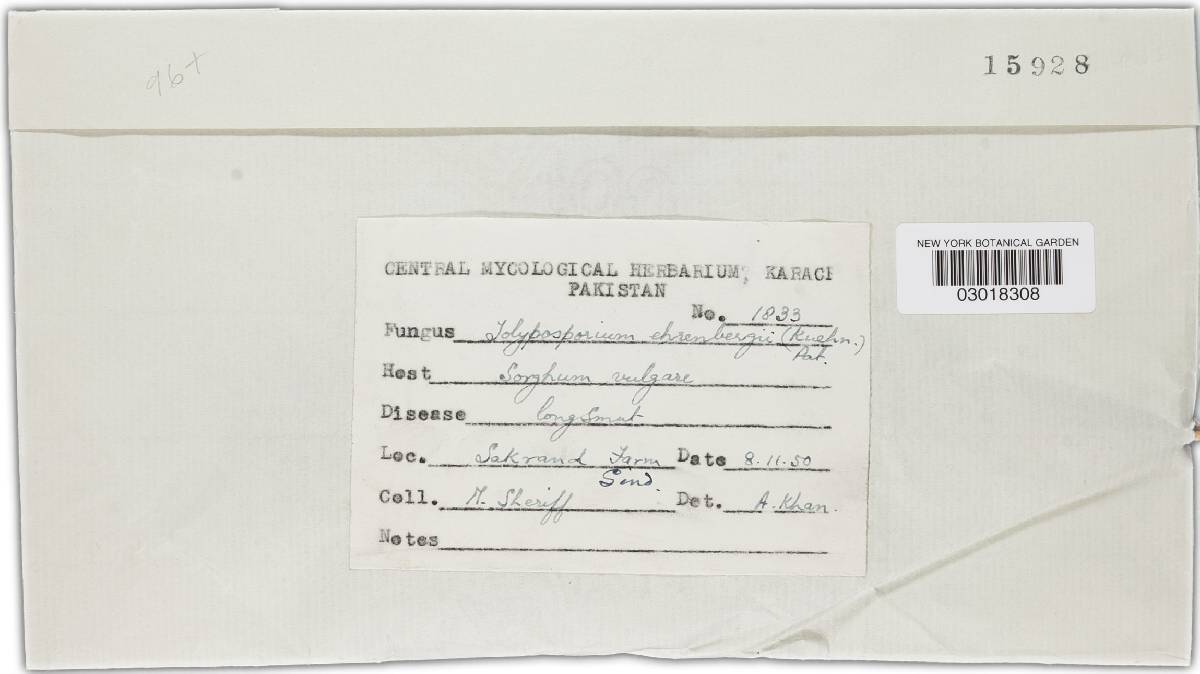 96+
15928
NEW YORK BOTANICAL GARDEN
03018308
CENTRAL MYCOLOGICAL HERBARIUM, KARACHI
PAKISTAN
No. 1833
Fungus Tolyposporium ehrenbergii (Kuehn.)
Pat.
Host Sorghum vulgare
Disease long smut
Loc. Sakrand Farm Date 8.11.50
Sind.
Coll. M. Sheriff Det. A. Khan.
Notes